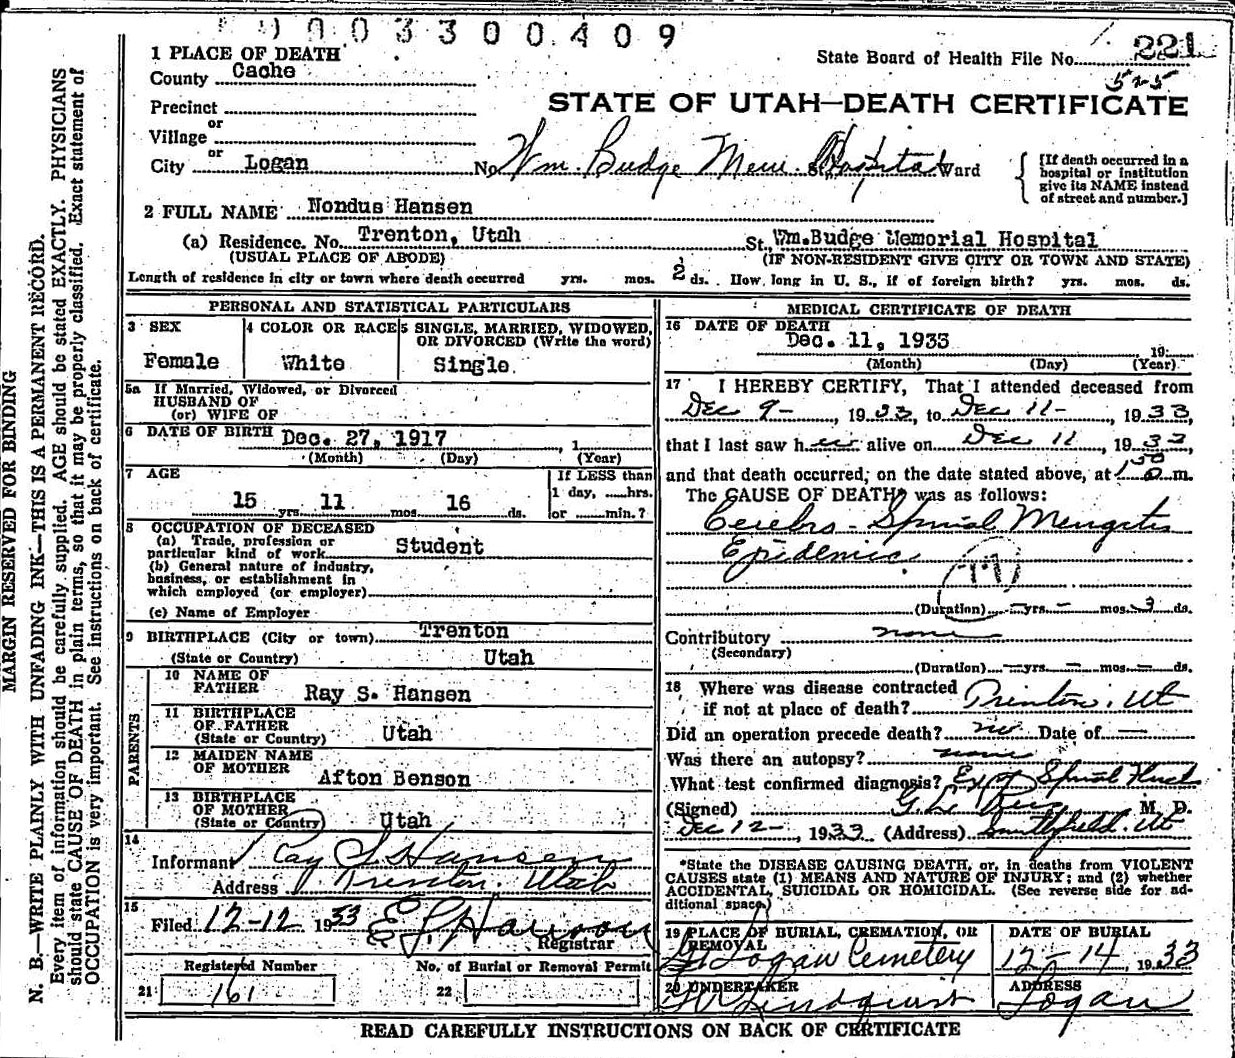 9003300409
1 PLACE OF DEATH
State Board of Health File No. 221
525
County Cache
STATE OF UTAH—DEATH CERTIFICATE
Precinct
or
Village
or
City Logan No. Wm. Budge Mem. Hospital Ward
[If death occurred in a
hospital or institution
give its NAME instead
of street and number.]
2 FULL NAME Nondus Hansen
(a) Residence. No. Trenton, Utah St. Wm.Budge Memorial Hospital
(USUAL PLACE OF ABODE) (IF NON-RESIDENT GIVE CITY OR TOWN AND STATE)
Length of residence in city or town where death occurred yrs. mos. 2 ds. How long in U. S., if of foreign birth? yrs. mos. ds.
PERSONAL AND STATISTICAL PARTICULARS
3 SEX
Female
4 COLOR OR RACE
White
5 SINGLE, MARRIED, WIDOWED,
OR DIVORCED (Write the word)
Single.
5a If Married, Widowed, or Divorced
HUSBAND OF
(or) WIFE OF
6 DATE OF BIRTH Dec. 27, 1917 , 1
(Month) (Day) (Year)
7 AGE
15 yrs. 11 mos. 16 ds.
If LESS than
1 day, hrs.
or min.?
8 OCCUPATION OF DECEASED
(a) Trade, profession or
particular kind of work Student
(b) General nature of industry,
business, or establishment in
which employed (or employer)
(c) Name of Employer
9 BIRTHPLACE (City or town) Trenton
(State or Country) Utah
PARENTS
10 NAME OF
FATHER Ray S. Hansen
11 BIRTHPLACE
OF FATHER
(State or Country) Utah
12 MAIDEN NAME
OF MOTHER Afton Benson
13 BIRTHPLACE
OF MOTHER
(State or Country) Utah
14
Informant Ray S. Hansen
Address Trenton. Utah
15
Filed 12-12 1933 E L Hanson
Registrar
Registered Number
21 161
No. of Burial or Removal Permit
22
MEDICAL CERTIFICATE OF DEATH
16 DATE OF DEATH
Dec. 11, 1933 19
(Month) (Day) (Year)
17 I HEREBY CERTIFY, That I attended deceased from
Dec 9-, 1933, to Dec 11-, 1933,
that I last saw her alive on Dec 11, 1933
and that death occurred, on the date stated above, at m.
The CAUSE OF DEATH* was as follows:
Cerebro-Spinal Mengitis
Epidemic.
(Duration) - yrs. - mos. 3 ds.
Contributory none
(Secondary)
(Duration) - yrs. - mos. - ds.
18 Where was disease contracted
if not at place of death? Trenton. Ut
Did an operation precede death? no Date of —
Was there an autopsy? none
What test confirmed diagnosis? Ex of Spinal Fluid
(Signed) G.L. Rees M. D.
Dec 12-, 1933 (Address) Smithfield. Ut
*State the DISEASE CAUSING DEATH, or, in deaths from VIOLENT
CAUSES state (1) MEANS AND NATURE OF INJURY; and (2) whether
ACCIDENTAL, SUICIDAL OR HOMICIDAL. (See reverse side for ad-
ditional space.)
19 PLACE OF BURIAL, CREMATION, OR
REMOVAL
Logan Cemetery
DATE OF BURIAL
12-14, 1933
20 UNDERTAKER
Lindquist
ADDRESS
Logan
READ CAREFULLY INSTRUCTIONS ON BACK OF CERTIFICATE
MARGIN RESERVED FOR BINDING
N. B.—WRITE PLAINLY WITH UNFADING INK—THIS IS A PERMANENT RECORD.
Every item of information should be carefully supplied. AGE should be stated EXACTLY. PHYSICIANS
should state CAUSE OF DEATH in plain terms, so that it may be properly classified. Exact statement of
OCCUPATION is very important. See instructions on back of certificate.